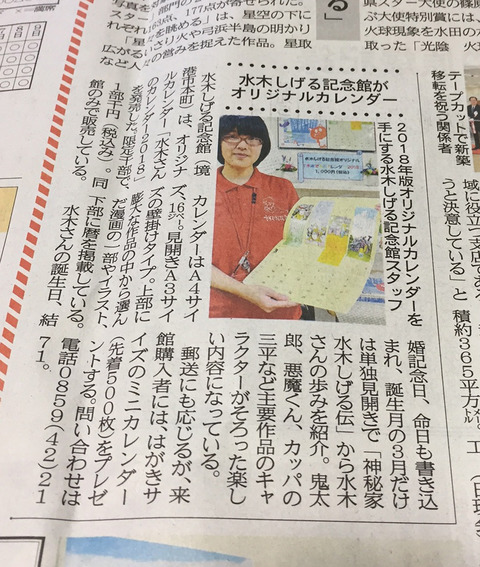 県スター大使の篠原
ぶ大使特別賞には、
火球現象を水田の水
取った「光陰　火球
る」
点、177点が寄せられた。
を眺める」は、星空の下に
いさり火や弓浜半島の明かり
の営みを捉えた作品。星取
テープカットで新築
移転を祝う関係者
水木しげる記念館が
オリジナルカレンダー
水木しげる記念館オリジナル
1,000円(税込)
2018年版オリジナルカレンダーを
手にする水木しげる記念館スタッフ
水木しげる記念館（境
港市本町）は、オリジナ
ルカレンダー「水木さん
のカレンダー2018」
を発売した。限定千部で、
一部千円（税込み）。同
館のみで販売している。
カレンダーはA4サイ
ズ、16㌻。見開きA3サイ
ズの壁掛けタイプ。上部に
膨大な作品の中から選ん
だ漫画の一部やイラスト、
下部に暦を掲載している。
水木さんの誕生日、結
婚記念日、命日も書き込
まれ、誕生月の3月だけ
は単独見開きで「神秘家
水木しげる伝」から水木
さんの歩みを紹介。鬼太
郎、悪魔くん、カッパの
三平など主要作品のキャ
ラクターがそろった楽し
い内容になっている。
郵送にも応じるが、来
館購入者には、はがきサ
イズのミニカレンダー
（先着500枚）をプレゼ
ントする。問い合わせは
電話0859(42)21
71。
域に役立つ支店であ
うと決意している」と
積約365平方㍍